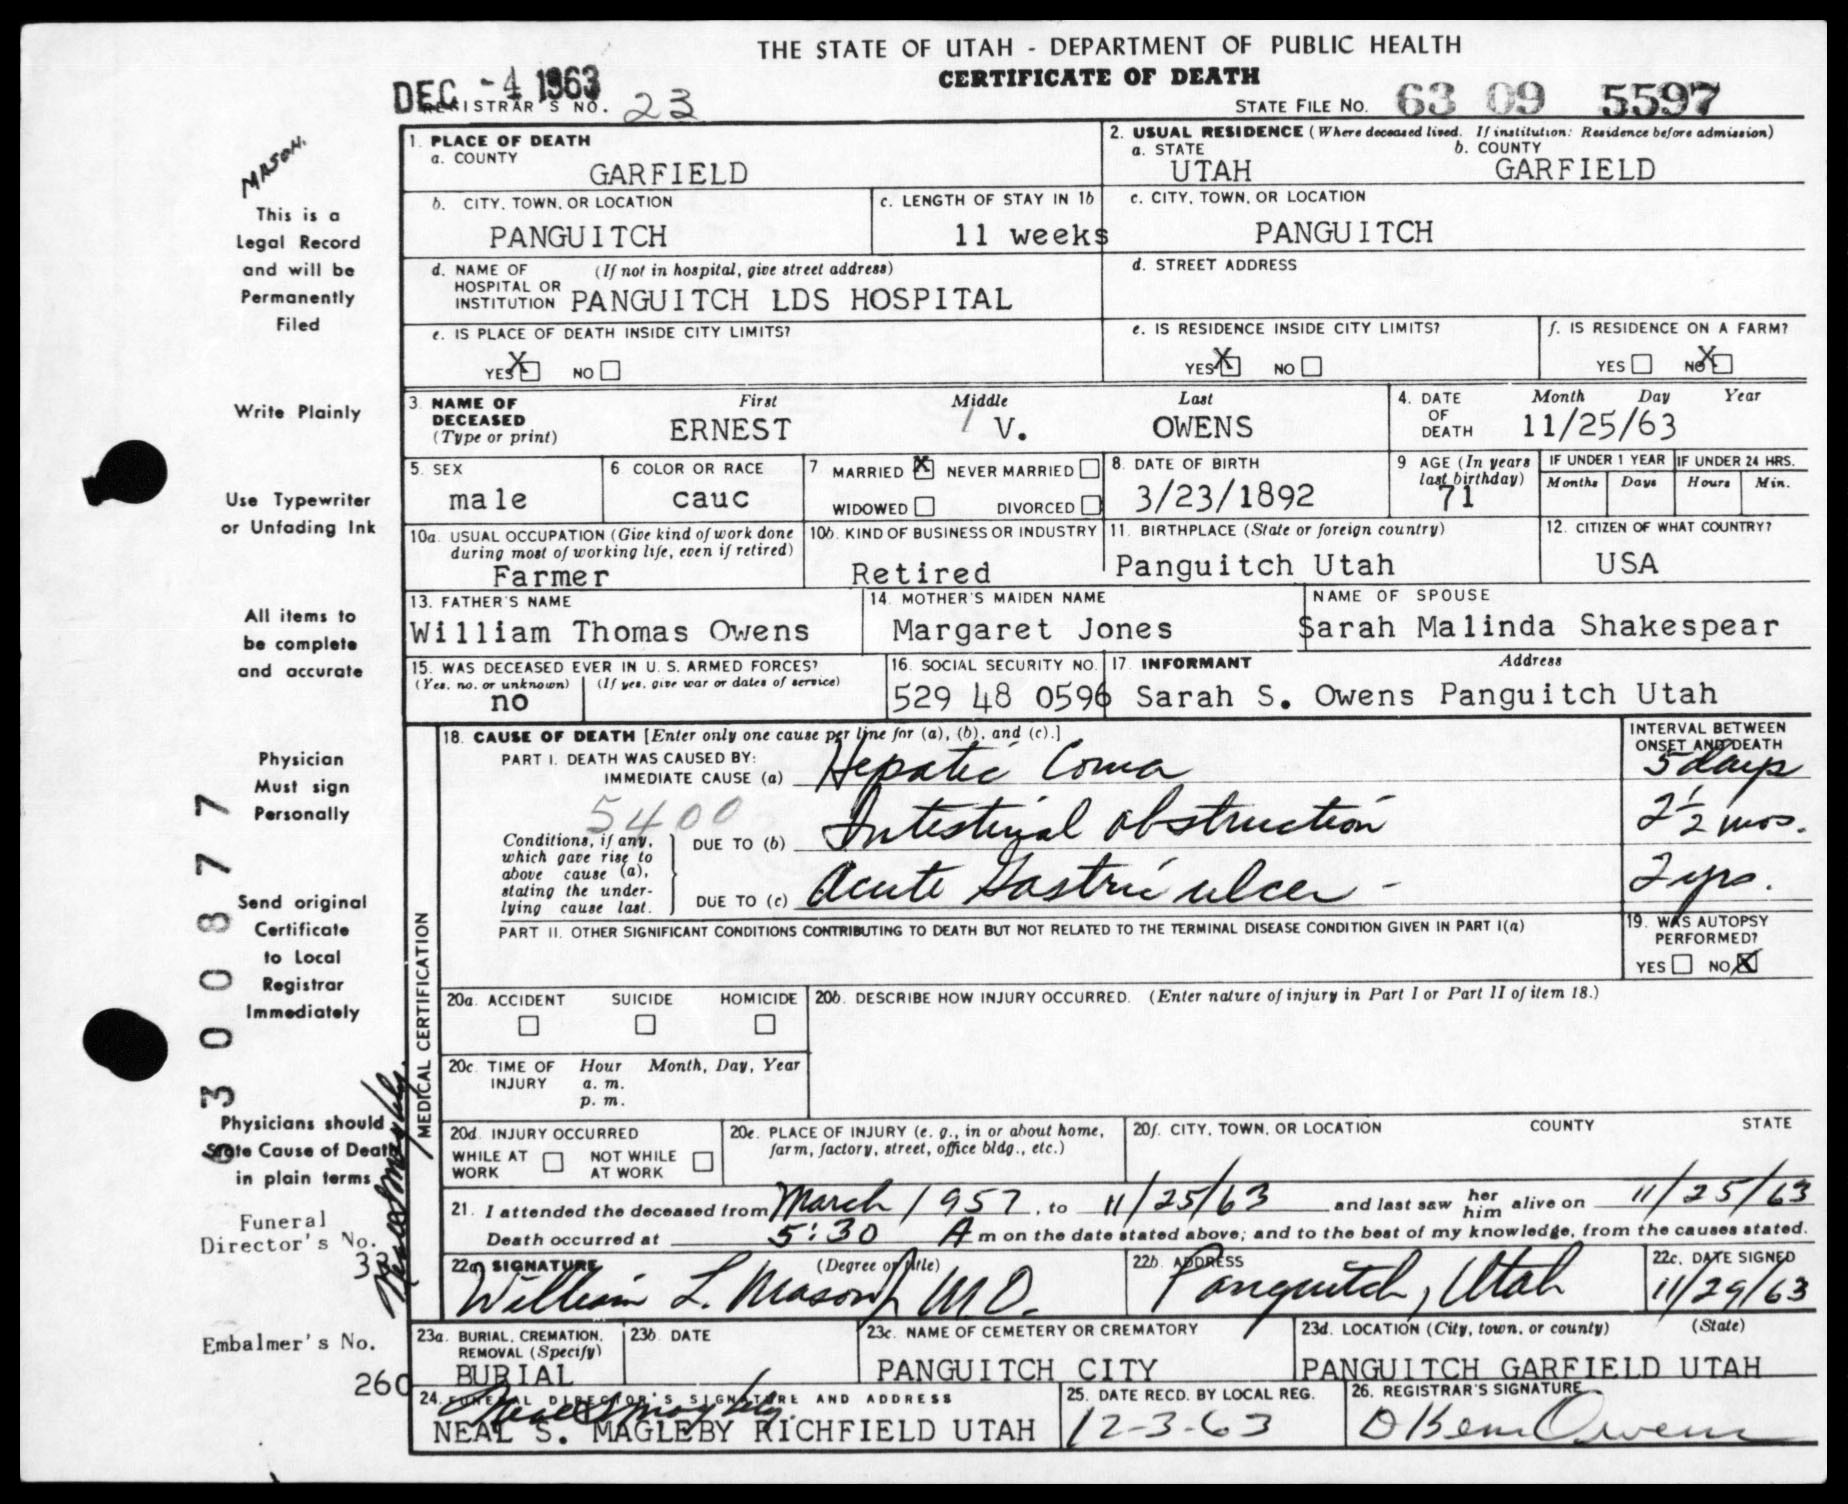 THE STATE OF UTAH - DEPARTMENT OF PUBLIC HEALTH
CERTIFICATE OF DEATH
DEC -4 1963
REGISTRAR'S NO. 23
STATE FILE NO. 63 09 5597
MASON.
This is a
Legal Record
and will be
Permanently
Filed
Write Plainly
Use Typewriter
or Unfading Ink
All items to
be complete
and accurate
Physician
Must sign
Personally
Send original
Certificate
to Local
Registrar
Immediately
Physicians should
State Cause of Death
in plain terms
Funeral
Director's No.
33
Embalmer's No.
260
6300877
Neal S Magleby
1. PLACE OF DEATH
a. COUNTY
GARFIELD
2. USUAL RESIDENCE (Where deceased lived. If institution: Residence before admission)
a. STATE b. COUNTY
UTAH GARFIELD
b. CITY, TOWN, OR LOCATION
PANGUITCH
c. LENGTH OF STAY IN 1b
11 weeks
c. CITY, TOWN, OR LOCATION
PANGUITCH
d. NAME OF (If not in hospital, give street address)
HOSPITAL OR
INSTITUTION PANGUITCH LDS HOSPITAL
d. STREET ADDRESS
e. IS PLACE OF DEATH INSIDE CITY LIMITS?
YES X NO
e. IS RESIDENCE INSIDE CITY LIMITS?
YES X NO
f. IS RESIDENCE ON A FARM?
YES NO X
3. NAME OF First Middle Last
DECEASED
(Type or print) ERNEST V. OWENS
4. DATE Month Day Year
OF
DEATH 11/25/63
5. SEX
male
6 COLOR OR RACE
cauc
7 MARRIED X NEVER MARRIED
WIDOWED DIVORCED
8. DATE OF BIRTH
3/23/1892
9 AGE (In years
last birthday)
71
IF UNDER 1 YEAR IF UNDER 24 HRS.
Months Days Hours Min.
10a. USUAL OCCUPATION (Give kind of work done
during most of working life, even if retired)
Farmer
10b. KIND OF BUSINESS OR INDUSTRY
Retired
11. BIRTHPLACE (State or foreign country)
Panguitch Utah
12. CITIZEN OF WHAT COUNTRY?
USA
13. FATHER'S NAME
William Thomas Owens
14. MOTHER'S MAIDEN NAME
Margaret Jones
NAME OF SPOUSE
Sarah Malinda Shakespear
15. WAS DECEASED EVER IN U. S. ARMED FORCES?
(Yes, no, or unknown) (If yes, give war or dates of service)
no
16. SOCIAL SECURITY NO.
529 48 0596
17. INFORMANT Address
Sarah S. Owens Panguitch Utah
MEDICAL CERTIFICATION
18. CAUSE OF DEATH [Enter only one cause per line for (a), (b), and (c).]
INTERVAL BETWEEN
ONSET AND DEATH
PART I. DEATH WAS CAUSED BY:
IMMEDIATE CAUSE (a) Hepatic Coma 5 days
5400
Conditions, if any,
which gave rise to
above cause (a),
stating the under-
lying cause last.
DUE TO (b) Intestinal obstruction 2 1/2 mos.
DUE TO (c) Acute Gastric ulcer - 2 yrs.
PART II. OTHER SIGNIFICANT CONDITIONS CONTRIBUTING TO DEATH BUT NOT RELATED TO THE TERMINAL DISEASE CONDITION GIVEN IN PART I(a)
19. WAS AUTOPSY
PERFORMED?
YES NO X
20a. ACCIDENT SUICIDE HOMICIDE
20b. DESCRIBE HOW INJURY OCCURRED. (Enter nature of injury in Part I or Part II of item 18.)
20c. TIME OF Hour Month, Day, Year
INJURY a. m.
p. m.
20d. INJURY OCCURRED
WHILE AT NOT WHILE
WORK AT WORK
20e. PLACE OF INJURY (e. g., in or about home,
farm, factory, street, office bldg., etc.)
20f. CITY, TOWN, OR LOCATION COUNTY STATE
21. I attended the deceased from March 1957, to 11/25/63 and last saw her him alive on 11/25/63
Death occurred at 5:30 A m on the date stated above; and to the best of my knowledge, from the causes stated.
22a. SIGNATURE (Degree or title)
William L. Mason M.D.
22b. ADDRESS
Panguitch, Utah
22c. DATE SIGNED
11/29/63
23a. BURIAL, CREMATION,
REMOVAL (Specify)
BURIAL
23b. DATE
23c. NAME OF CEMETERY OR CREMATORY
PANGUITCH CITY
23d. LOCATION (City, town, or county) (State)
PANGUITCH GARFIELD UTAH
24. FUNERAL DIRECTOR'S SIGNATURE AND ADDRESS
Neal S Magleby.
NEAL S. MAGLEBY RICHFIELD UTAH
25. DATE RECD. BY LOCAL REG.
12-3-63
26. REGISTRAR'S SIGNATURE
Owens